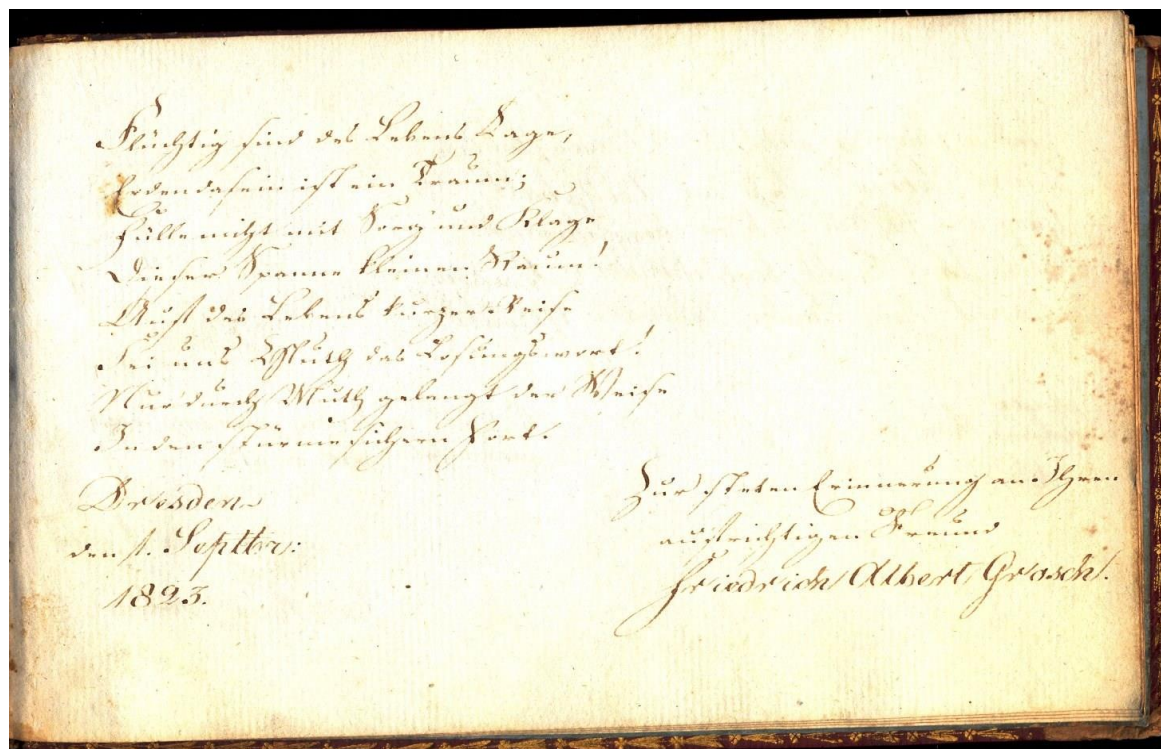 Flüchtig sind des Lebens Tage,
Erdendasein ist ein Traum;
Fülle nicht mit Sorg' und Klage
Dieser Spanne kleinen Raum!
Auf des Lebens kurzer Reise
Sei uns Muth das Losungswort!
Nur durch Muth gelangt der Weise
In den Sichern Port.
Dresden
den Septbr:
1823.
Zur steten Erinnerung an Ihren
aufrichtigen Freund
Friedrich Albert Grosch.